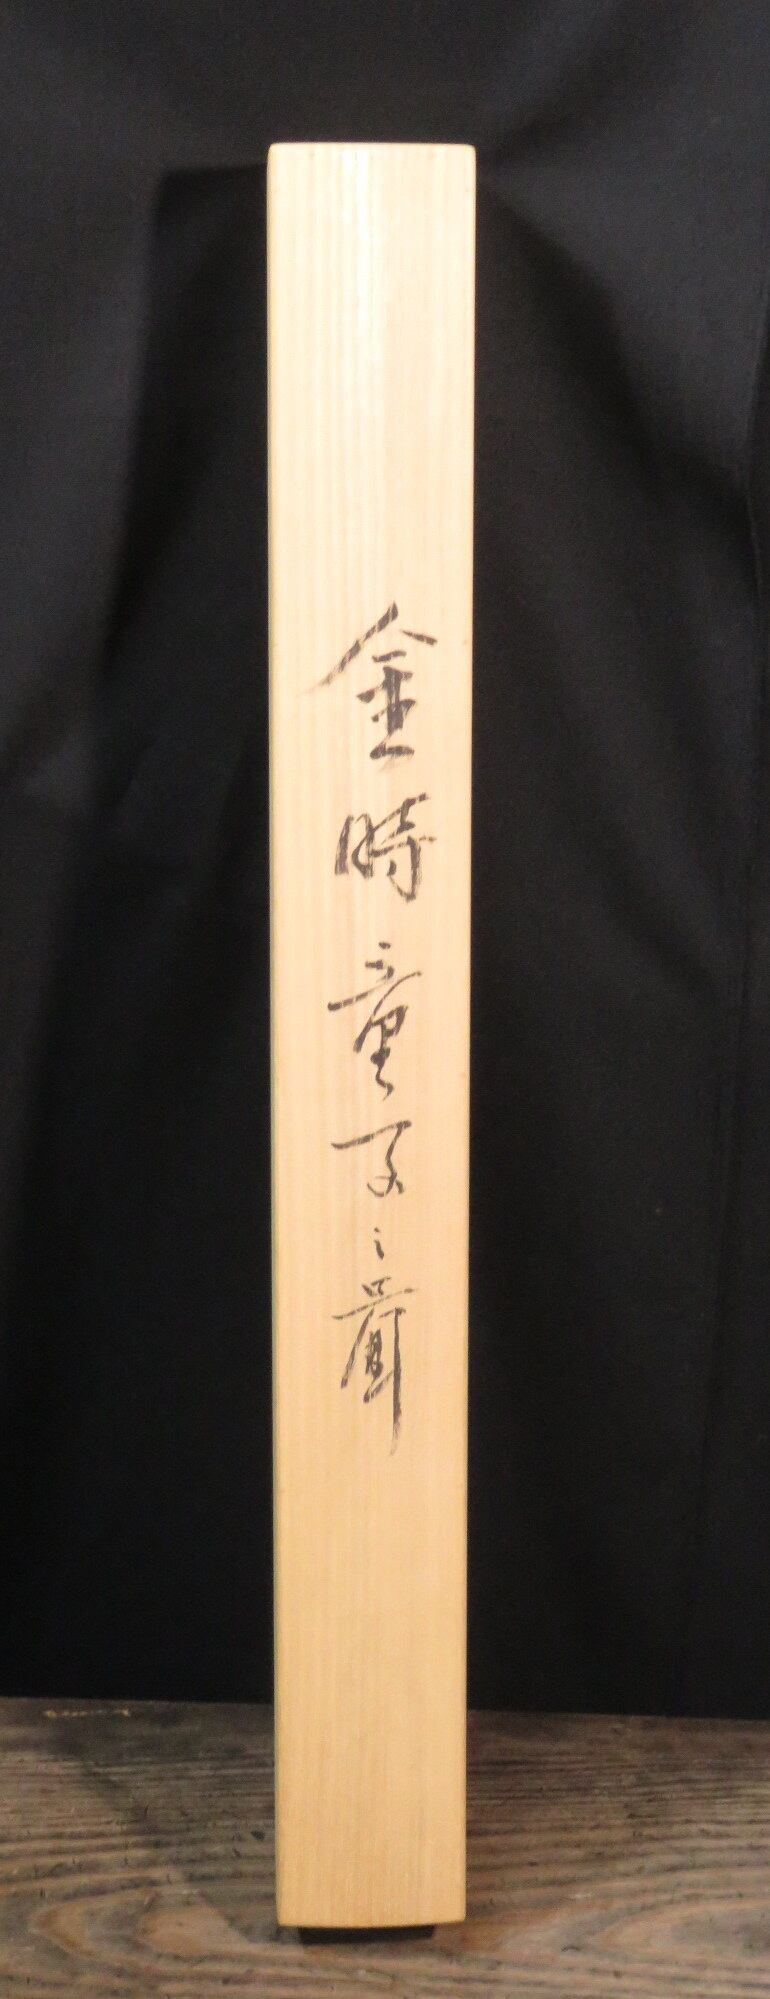 金時童子之圖